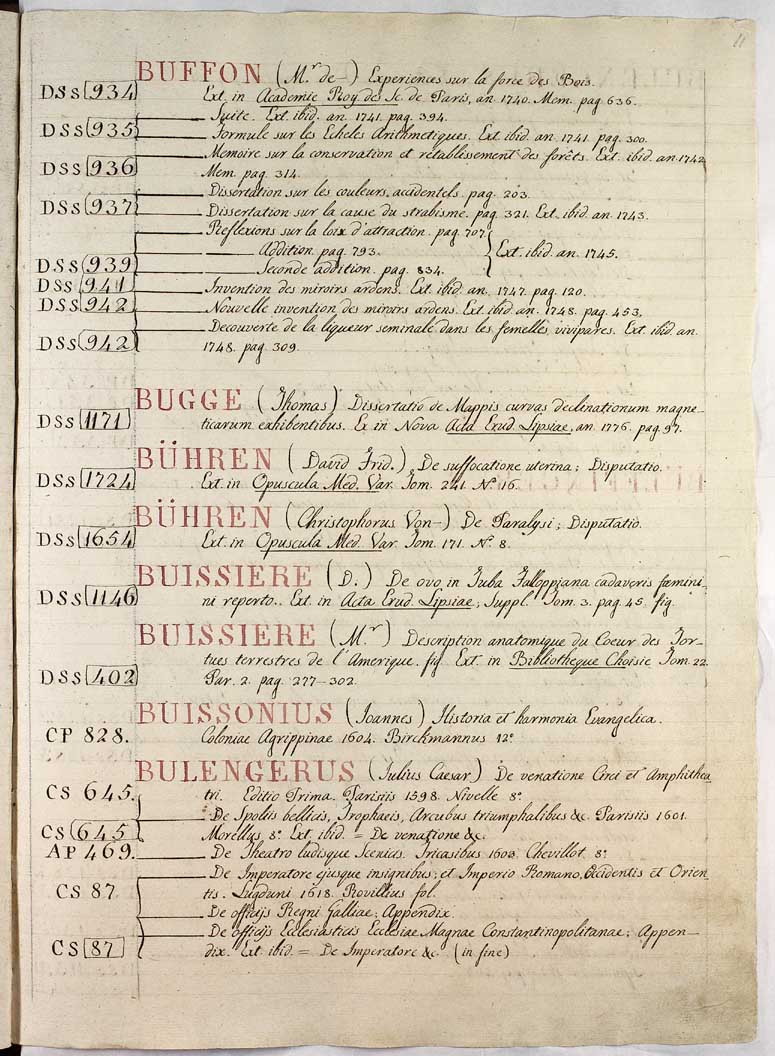 11
BUFFON (M.r de—) Experiences sur la force des Bois.
DSS 934 Ext. in Academie Roy. des Sc. de Paris, an. 1740. Mem. pag. 636.
Suite. Ext. ibid. an. 1741. pag. 394.
DSS 935 Formule sur les Echeles Arithmetiques. Ext. ibid. an. 1741. pag. 300.
Memoire sur la conservation et rétablissement des forêts. Ext. ibid. an. 1742
DSS 936 Mem. pag. 314.
Dissertation sur les couleurs accidentels. pag. 203.
DSS 937 Dissertation sur la cause du strabisme. pag. 321. Ext. ibid. an. 1743.
Reflexions sur la loix d'attraction. pag. 707.
Addition. pag. 793. Ext. ibid. an. 1745.
DSS 939 Seconde addition. pag. 834.
DSS 941 Invention des miroirs ardens. Ext. ibid. an. 1747. pag. 120.
DSS 942 Nouvelle invention des miroirs ardens. Ext. ibid. an. 1748. pag. 453.
Decouverte de la liqueur seminale dans les femelles vivipares. Ext. ibid. an.
DSS 942 1748. pag. 309.
BUGGE (Thomas) Dissertatio de Mappis curvas declinationum magne-
DSS 1171 ticarum exhibentibus. Ex in Nova Acta Erud. Lipsiae, an. 1776. pag. 97.
BÜHREN (David Frid.) De suffocatione uterina; Disputatio.
DSS 1724 Ext. in Opuscula Med. Var. Tom. 241. N.º 16.
BÜHREN (Christophorus Von—) De Paralysi; Disputatio.
DSS 1654 Ext. in Opuscula Med. Var. Tom. 171. N.º 8.
BUISSIERE (D.) De ovo in Tuba Falloppiana cadaveris fœmini-
DSS 1146 ni reperto.. Ext. in Acta Erud. Lipsiae; Suppl. Tom. 3. pag. 45. fig.
BUISSIERE (M.r) Description anatomique du Coeur des Tor-
tues terrestres de l'Amerique. fig. Ext. in Bibliotheque Choisie Tom. 22.
DSS 402 Par. 2. pag. 277—302.
BUISSONIUS (Joannes) Historia et harmonia Evangelica.
CP 828. Coloniae Agrippinae 1604. Birckmannus 12º
BULENGERUS (Julius Caesar) De venatione Circi et Amphithea
CS 645. tri. Editio Prima. Parisiis 1598. Nivelle 8º
De Spoliis bellicis, Trophaeis, Arcubus triumphalibus &c. Parisiis 1601.
CS 645 Morellus, 8º Ext. ibid. = De venatione &c.
AP 469. De Theatro ludisque Scenicis. Tricasibus 1603. Chevillot 8º
De Imperatore ejusque insignibus; et Imperio Romano, Occidentis et Orien
CS 87 tis. Lugduni 1618. Rovillius fol.
De officijs Regni Galliae; Appendix.
De officijs Ecclesiasticis Ecclesiae Magnae Constantinopolitanae; Appen—
CS 87 dix. Ext. ibid. = De Imperatore &c. (in fine)